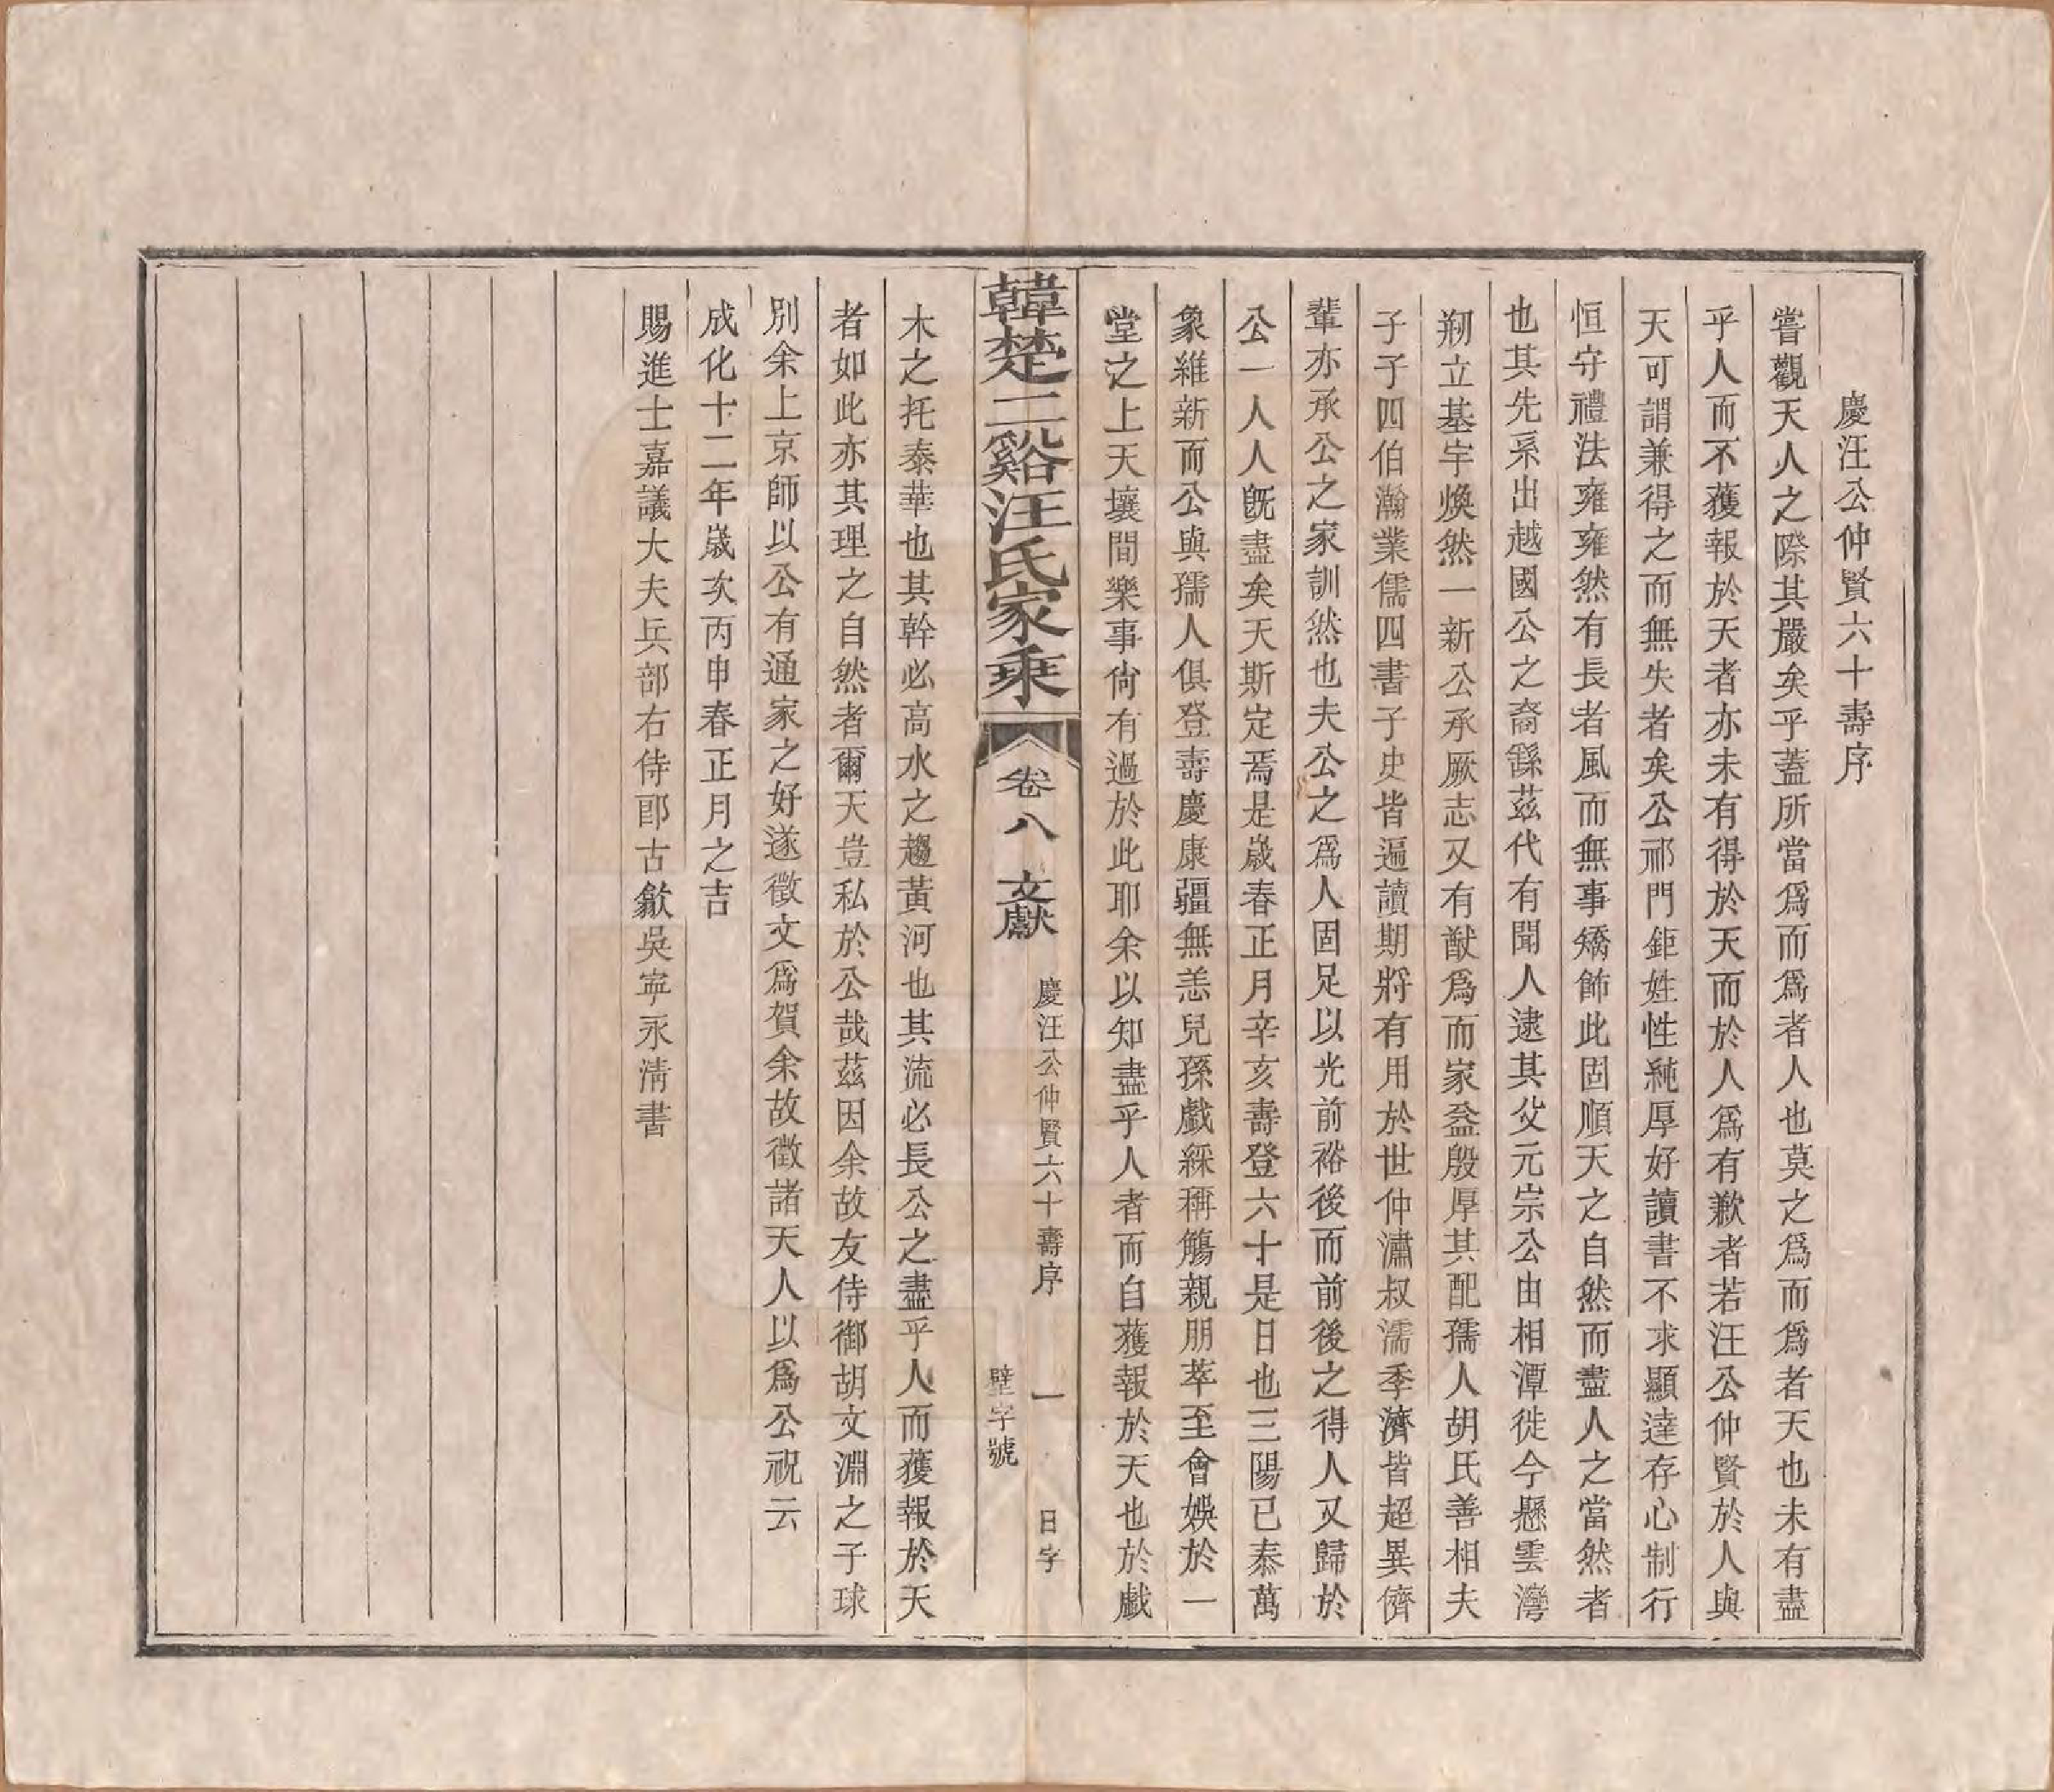 慶汪公仲賢六十壽序
嘗觀天人之際其嚴矣乎蓋所當爲而爲者人也莫之爲而爲者天也未有盡
乎人而不獲報於天者亦未有得於天而於人爲有歉者若汪公仲賢於人與
天可謂兼得之而無失者矣公祁門鉅姓性純厚好讀書不求顯達存心制行
恒守禮法雍雍然有長者風而無事矯飾此固順天之自然而盡人之當然者
也其先系出越國公之裔繇茲代有聞人逮其父元宗公由相潭徙今懸雲灣
剏立基宇煥然一新公承厥志又有猷爲而家益殷厚其配孺人胡氏善相夫
子子四伯瀚業儒四書子史皆遍讀期將有用於世仲潚叔濡季濟皆超異儕
輩亦承公之家訓然也夫公之爲人固足以光前裕後而前後之得人又歸於
公一人人既盡矣天斯定焉是歲春正月辛亥壽登六十是日也三陽已泰萬
象維新而公與孺人俱登壽慶康疆無恙兒孫戲綵稱觴親朋萃至會娛於一
堂之上天壤間樂事尙有過於此耶余以知盡乎人者而自獲報於天也於戲
韓楚二谿汪氏家乘
卷八
文獻
慶汪公仲賢六十壽序
一
日字
壁字號
木之托泰華也其幹必高水之趨黃河也其流必長公之盡乎人而獲報於天
者如此亦其理之自然者爾天豈私於公哉茲因余故友侍御胡文淵之子球
別余上京師以公有通家之好遂徵文爲賀余故徵諸天人以爲公祝云
成化十二年歲次丙申春正月之吉
賜進士嘉議大夫兵部右侍郎古歙吳寧永淸書